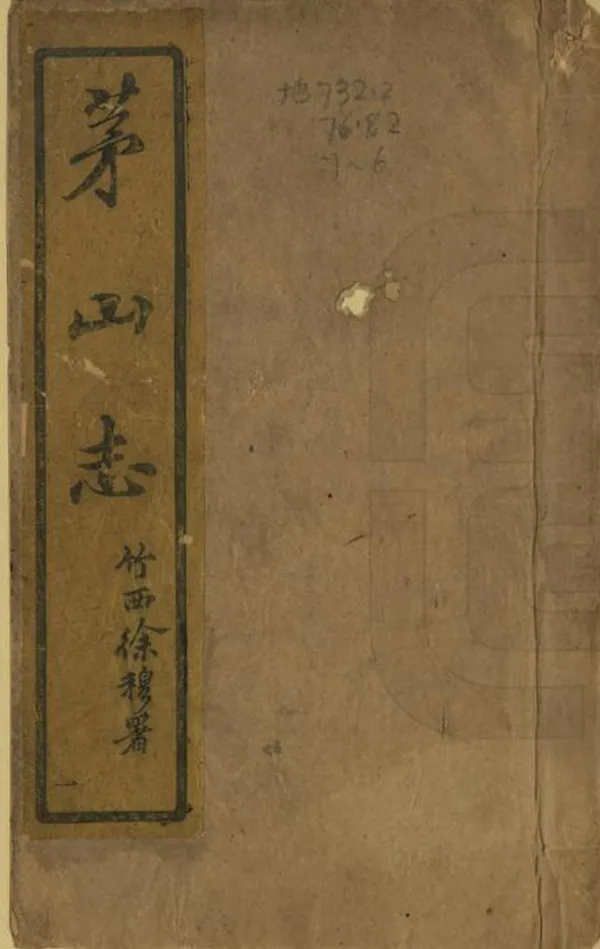 茅山志
竹西徐穆署
一
地732.2
76.82